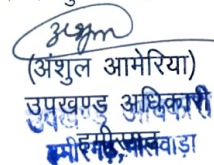 (अंशुल आमेरिया)
उपखण्ड अधिकारी
हमीरगढ़, भीलवाड़ा